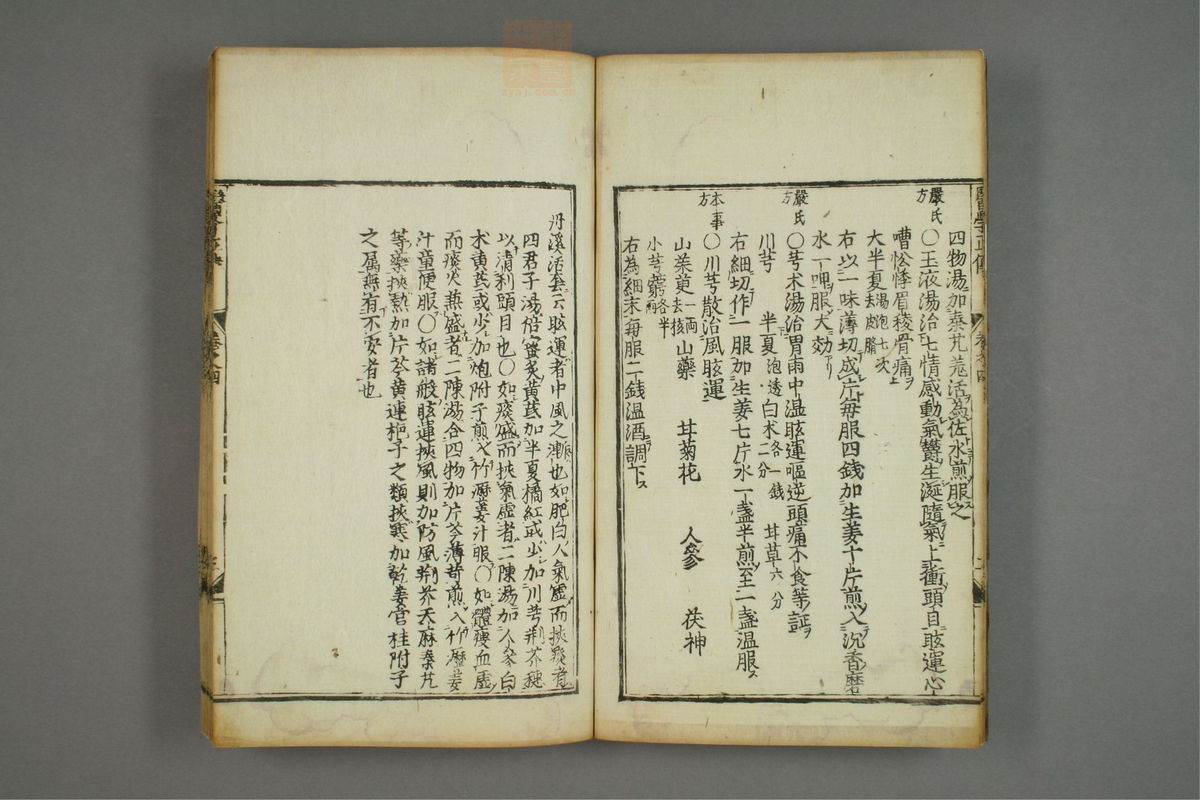 四物湯加秦艽羌活為佐水煎服之
嚴氏方
〇玉液湯治七情感動氣欝生涎隨氣上衝頭目眩運心
嘈忪悸眉稜骨痛
大半夏湯泡七次去皮臍
右以一味薄切成片每服四錢加生姜十片煎入沉香磨
水一呷服大効
嚴氏方
〇芎朮湯治冒雨中湿眩運嘔逆頭痛不食等証
川芎 半夏泡透 白朮各一錢二分 甘草六分
右細切作一服加生姜七片水一盞半煎至一盞温服
本事方
〇川芎散治風眩運
山茱萸一兩去核 山藥 甘菊花 人參 茯神
小芎藭各半兩
右為細末每服二錢温酒調下
醫學正傳 卷之四
丹溪活套云眩運者中風之漸也如肥白人氣虛而挾痰者
四君子湯倍蜜炙黃芪加半夏橘紅或少加川芎荆芥穗
以清利頭目也〇如痰盛而挾氣虛者二陳湯加人參白
朮黃芪或少加炮附子煎入竹瀝姜汁服〇如體瘦血虛
而痰火熱盛者二陳湯合四物加片芩薄苛煎入竹瀝姜
汁童便服〇如諸般眩運挾風則加防風荆芥天麻秦艽
等藥挾熱加片芩黄連梔子之類挾寒加乾姜官桂附子
之属無有不安者也